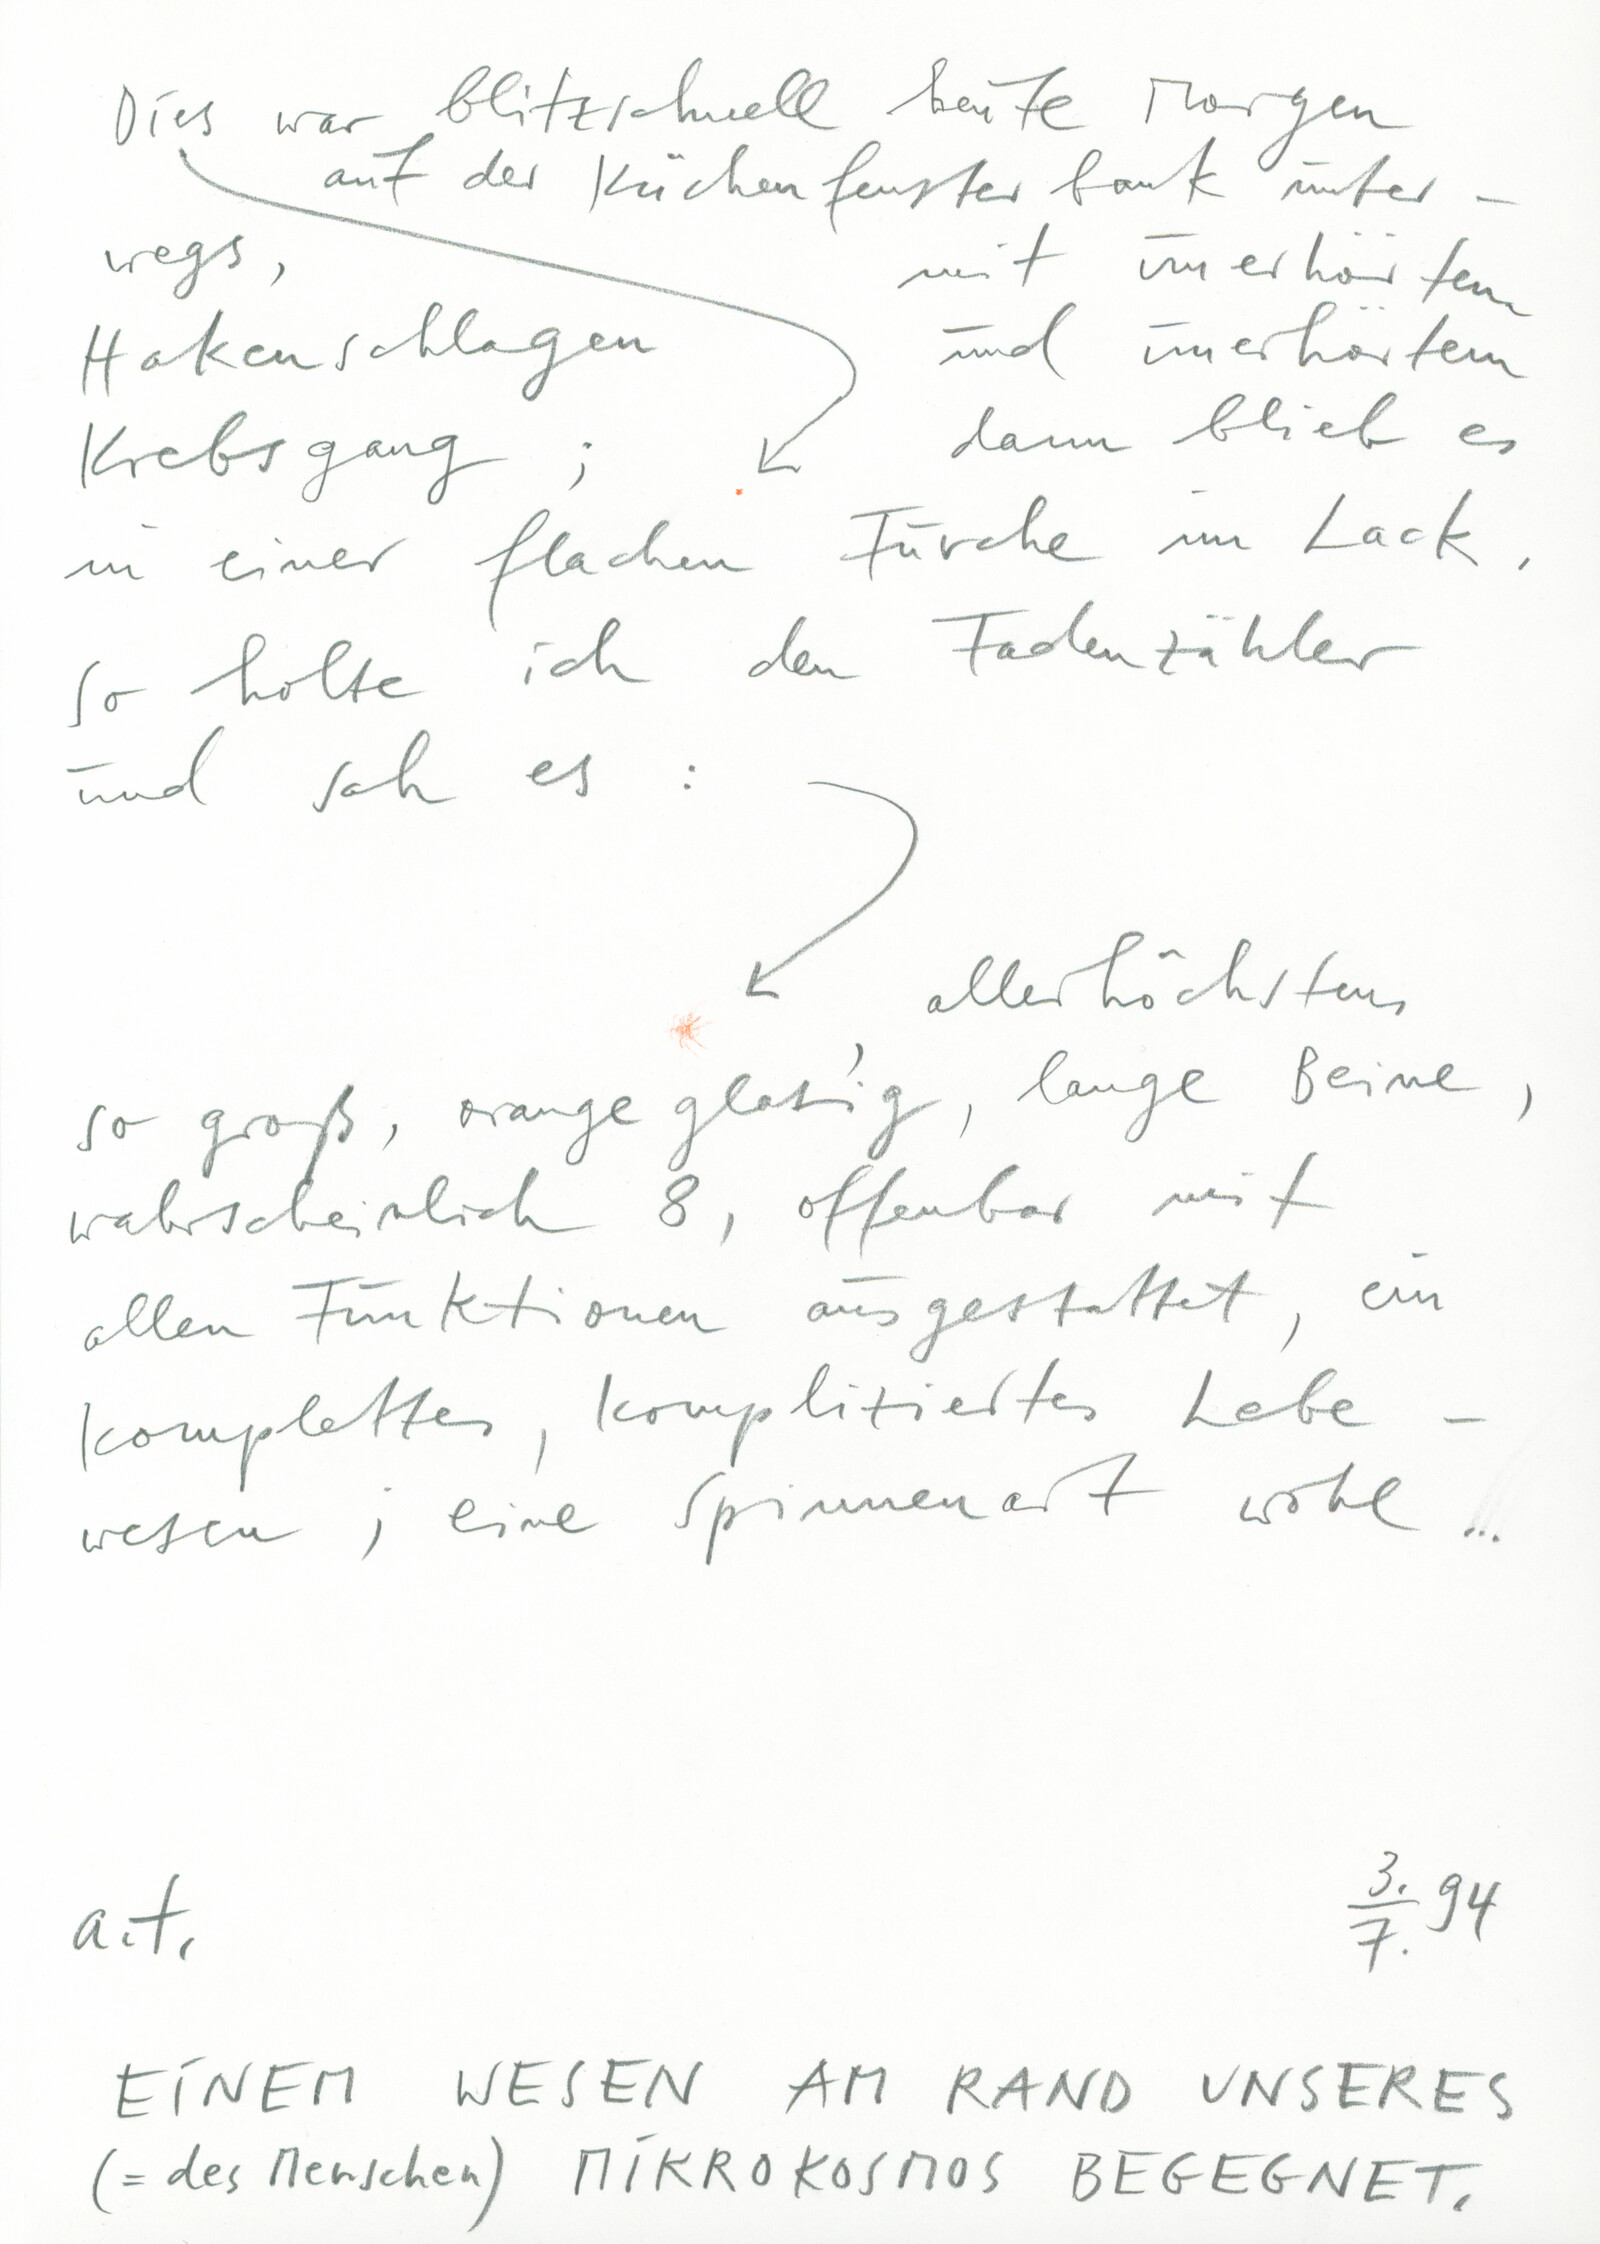 Dies war blitzschnell heute Morgen
auf der Küchenfensterbank unter-
wegs, mit unerhörtem
Hakenschlagen und unerhörtem
Krebsgang; dann blieb es
in einer flachen Furche im Lack.
so holte ich den Fadenzähler
und sah es:
, allerhöchstens
so groß, orange glasig, lange Beine,
wahrscheinlich 8, offenbar mit
allen Funktionen ausgestattet, ein
komplettes, kompliziertes Lebe-
wesen; eine Spinnenart wohl...
a.t. 3./7. 94
EINEM WESEN AM RAND UNSERES
(= des Menschen) MIKROKOSMOS BEGEGNET.